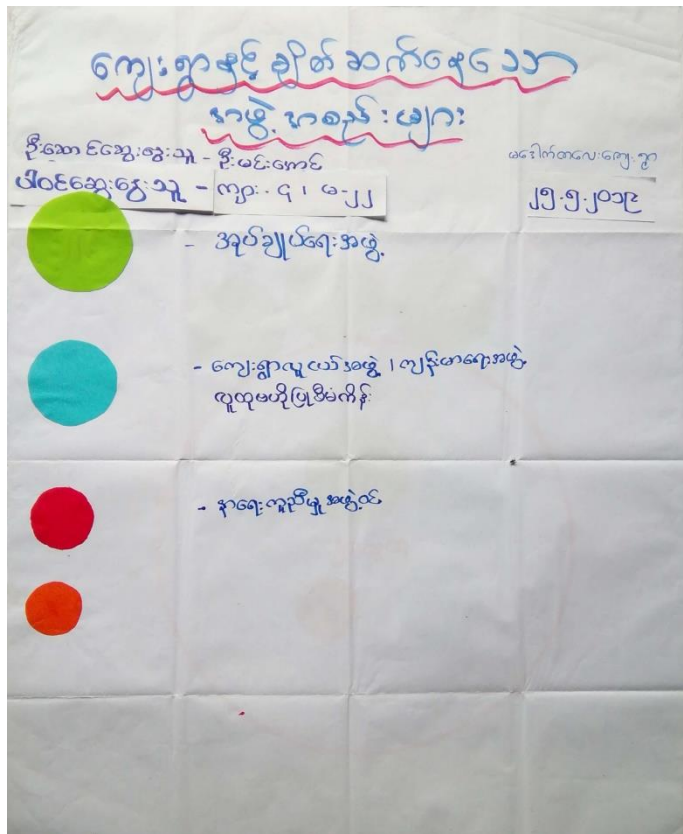 ကျေးရွာနှင့် ချိတ်ဆက်နေသော
အဖွဲ့အစည်းများ
ဦးဆောင်ဆွေးနွေးသူ - ဦးမင်းကောင်
မဒေါက်တလေးကျေးရွာ
ပါဝင်ဆွေးနွေးသူ - ကျား - ၄ ၊ မ - ၂၂
၂၅.၅.၂၀၁၉
- အုပ်ချုပ်ရေးအဖွဲ့
- ကျေးရွာလူငယ်အဖွဲ့ ၊ ကျန်းမာရေးအဖွဲ့
လူထုဗဟိုပြုစီမံကိန်း
- နာရေးကူညီမှုအဖွဲ့ဝင်